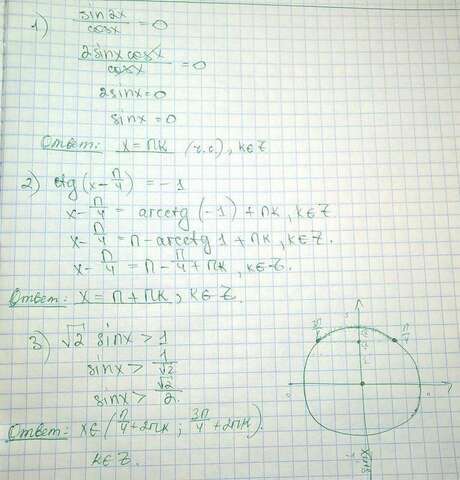 1) sin2x/cosx = 0
2sinx cosx/cosx = 0
2sinx = 0
sinx = 0
Ответ: x = πk (ч.с.), k∈Z
2) ctg(x - π/4) = -1
x - π/4 = arcctg(-1) + πk, k∈Z
x - π/4 = π - arcctg 1 + πk, k∈Z.
x - π/4 = π - π/4 + πk, k∈Z.
Ответ: x = π + πk, k∈Z.
3) √2 sinx > 1
sinx > 1/√2
sinx > √2/2.
Ответ: x∈(π/4 + 2πk; 3π/4 + 2πk).
k∈Z.
π/4
0